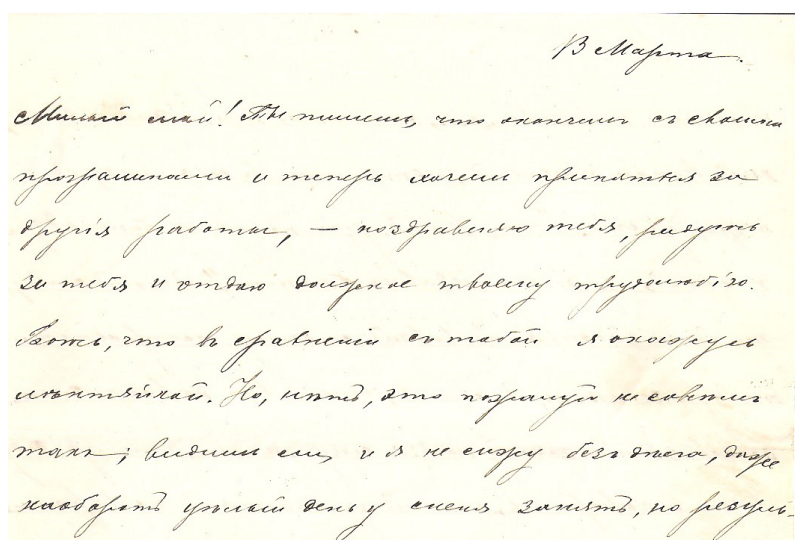 13 Марта.
Милый мой! Ты пишешь, что окончилъ съ своими
программами и теперь хочешь приняться за
другія работы, — поздравляю тебя, радуюсь
за тебя и отдаю должное твоему трудолюбію.
Боюсь, что въ сравненіи съ тобой я окажусь
лѣнтяйкой. Но, нѣтъ, это пожалуй не совсѣмъ
такъ; видишь ли, и я не сижу безъ дѣла, даже
наоборотъ цѣлый день у меня занятъ, но резуль-